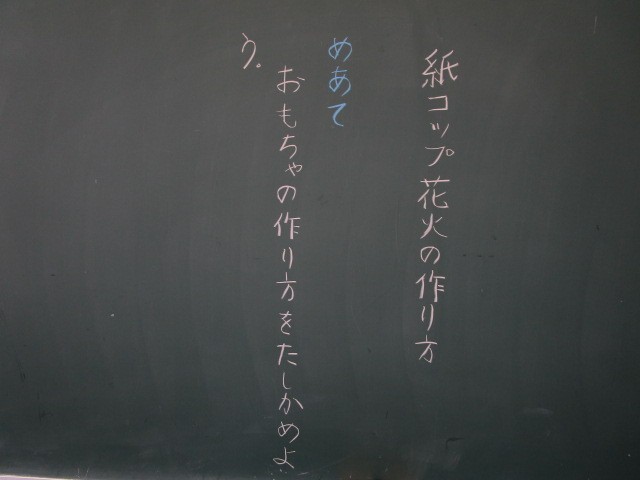 紙コップ花火の作り方
めあて
おもちゃの作り方をたしかめよ
う。